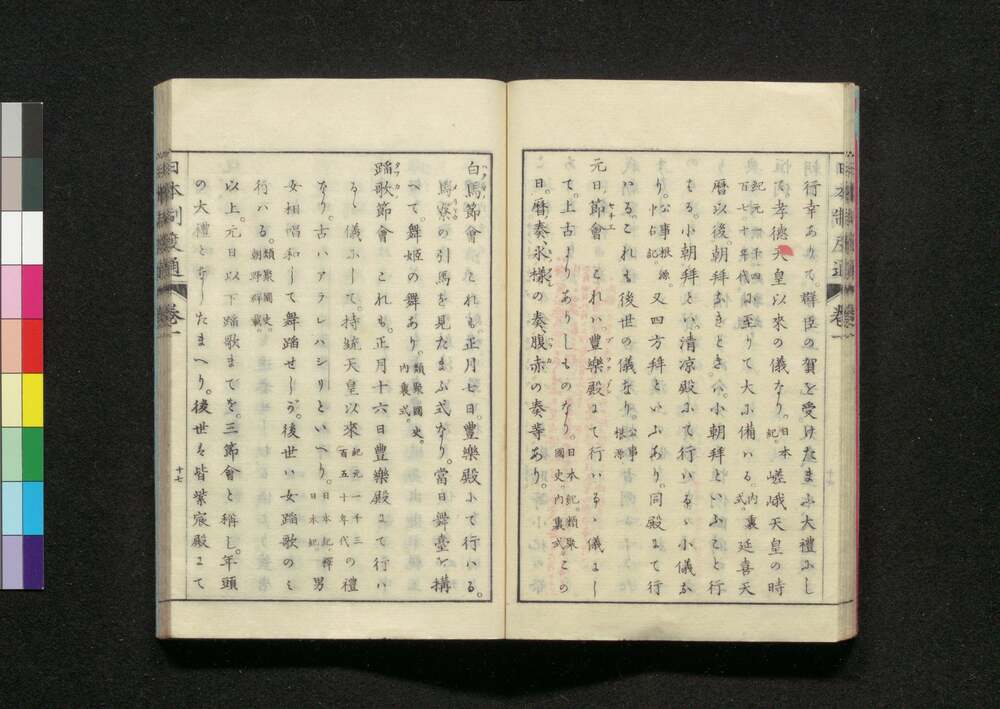 行幸ありて。群臣の賀を受けたまふ大禮にし
て孝德天皇以來の儀なり。日本紀。嵯峨天皇の時
紀元一千四百七十年代に至りて大に備はる。内裏式。延喜天
曆以後。朝拜なきときハ。小朝拜といふこと行
はる。小朝拜とハ清凉殿にて行はるゝ小儀な
り。公事根源。中右記。又四方拜といふあり。同殿にて行
はる。これも後世の儀なり。公事根源
元日節會 これハ。豐樂殿にて行はるゝ儀にし
て。上古よりありしものなり。日本紀。類聚國史。内裏式。この
日。曆奏氷樣の奏腹赤の奏等あり。
白馬節會 これも。正月七日。豐樂殿にて行はる。
馬寮の引馬を見たまふ式なり。當日舞臺を搆
へて。舞姬の舞あり。類聚國史。内裏式。
蹈歌節會 これも。正月十六日豐樂殿にて行ハ
るゝ儀にして。持統天皇以來紀元一千三百五十年代の禮
なり。古ハアラレハシリといへり。日本紀。釋日本紀。男
女相唱和して舞蹈せしが。後世ハ女蹈歌のミ
行ハる。類聚國史。朝野群載。
以上。元日以下蹈歌までを。三節會と稱し。年頭
の大禮となしたまへり。後世は皆紫宸殿にて
日本制度通
卷一
十七